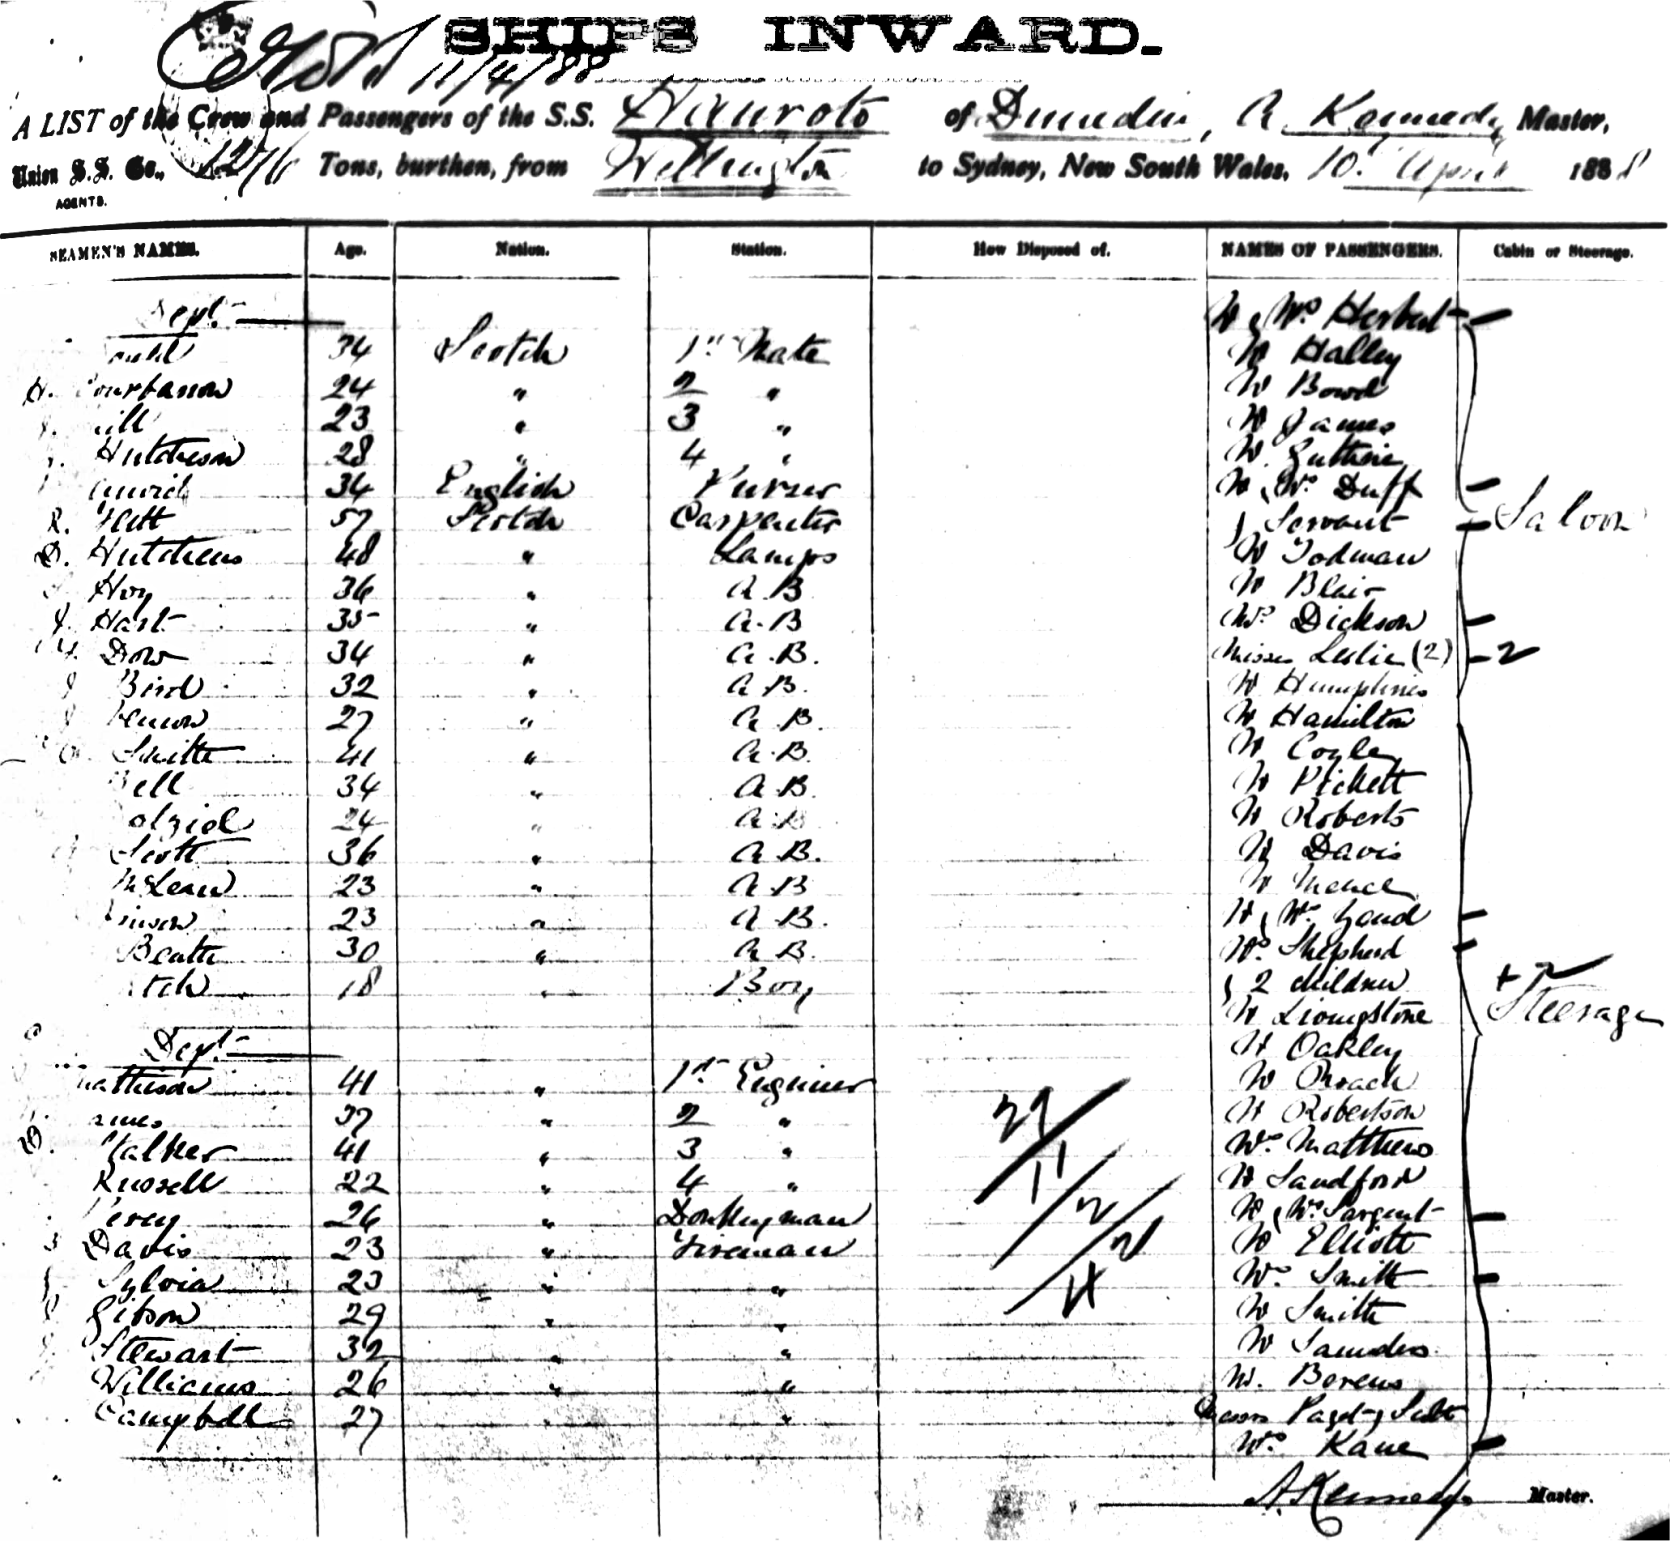 SHIPS INWARD.
11/4/88
A LIST of the Crew and Passengers of the S.S. Hauroto of Dunedin, A. Kennedy Master,
Union S.S. Co., 1276 Tons, burthen, from Wellington to Sydney, New South Wales, 10 April 1888
AGENTS.
SEAMEN'S NAMES. Age. Nation. Station. How Disposed of. NAMES OF PASSENGERS. Cabin or Steerage.
Dept. Herbert
34 Scotch 1st Mate Mr Halley
H. 24 " 2 " Mr Bowd
23 " 3 " Mr James
Hutcheson 28 " 4 " Mr Guthrie
34 English Purser M & Mrs Duff
R. Flett 57 Scotch Carpenter & Servant Saloon
D. Hutchens 48 " Lamps Mr Todman
Hoy 36 " A.B Mr Blair
J. Hart 35 " A.B Mrs Dickson
Dow 34 " A.B. Misses Leslie (2) 2
J Bird 32 " A.B. Mr Humphries
27 " A.B. Mr Hamilton
Smith 41 " A.B. Mr Coyle
Bell 34 " A.B. Mr Pickett
24 " A.B Mr Roberts
Scott 36 " A.B. Mr Davis
McLean 23 " A.B Mr
23 " A.B. M & Mrs
Beath 30 " A.B. Mrs Shepherd
18 " Boy & 2 children + 2
Mr Livingstone Steerage
Dept. Mr Oakley
41 " 1st Engineer Mr Roach
37 " 2 " 27 Mr Robertson
Stalker 41 " 3 " 11 Mrs Matthews
Russell 22 " 4 " Mr Sandford
26 " Donkeyman 2 M & Mrs Sargent
Davis 23 " Fireman 2 Mr Elliott
Sylvia 23 " " Mrs Smith
Gibson 29 " " Mr Smith
Stewart 32 " " Mr Saunders
Williams 26 " " M. Berens
Campbell 27 " " Paget &
Mrs Kane
A. Kennedy Master.